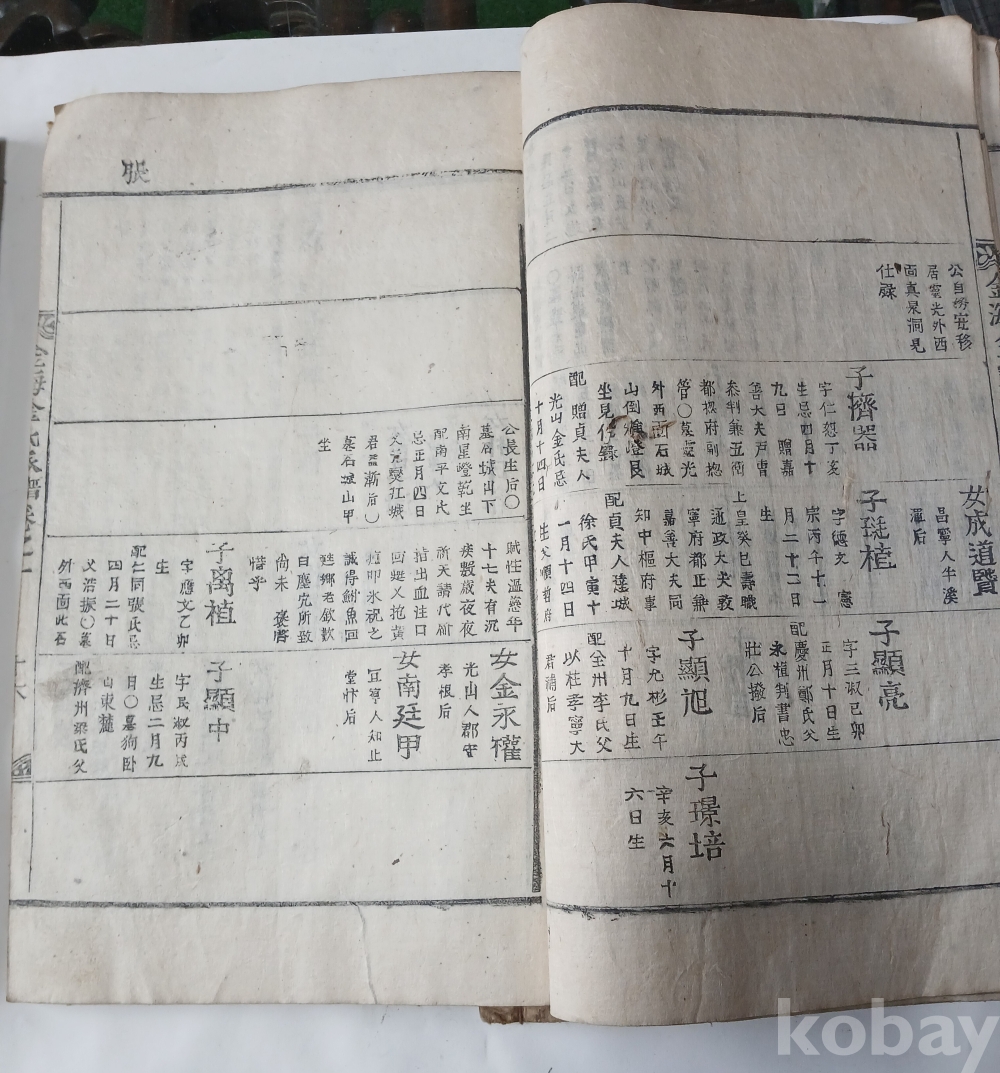 公自綾安移
居靈光外西
面真泉洞見
仕祿
子擠器
字仁恕丁亥
生忌四月十
九日 贈嘉
善大夫戶曹
參判兼五衛
都摠府副摠
管〇墓靈光
外西面石城
山倒
坐見
配 贈貞夫人
光山金氏忌
十月十四日
女成道賢
昌寧人牛溪
渾后
子珽植
宗丙午十一
月二十二日
生
上皇癸巳壽職
通政大夫敦
寧府都正兼
嘉善大夫同
知中樞府事
配貞夫人達城
徐氏甲寅十
一月十四日
生父順哲府
子顯亮
字三淑己卯
正月十日生
配慶州鄭氏父
永植判書忠
壯公撥后
子顯旭
字允彬壬午
十月九日生
配全州李氏父
以桂孝寧大
君浦后
子璟培
辛亥六月十
六日生
金海金氏派譜卷之一
張
公長生后〇
墓石城山下
南星嶝乾坐
配南平文氏
忌正月四日
君孟漸后〇
墓石城山甲
坐
賦性溫慈年
十七夫有沉
疾數歲夜夜
祈天請代
指出血注口
回甦又抱黃
疽叩氷祝之
誠得鮒魚回
甦鄕老歛歎
曰塵
尙未 褒啓
惜乎
子禹植
字應文乙卯
生
配仁同張氏忌
四月二十日
父浩振〇墓
外西面北石
女金永權
光山人郡守
孝根后
女南廷甲
宜寧人知止
堂忭后
子顯中
字民淑丙戌
生忌二月九
日〇墓狗卧
山東麓
配濟州梁氏父
十六
kobay